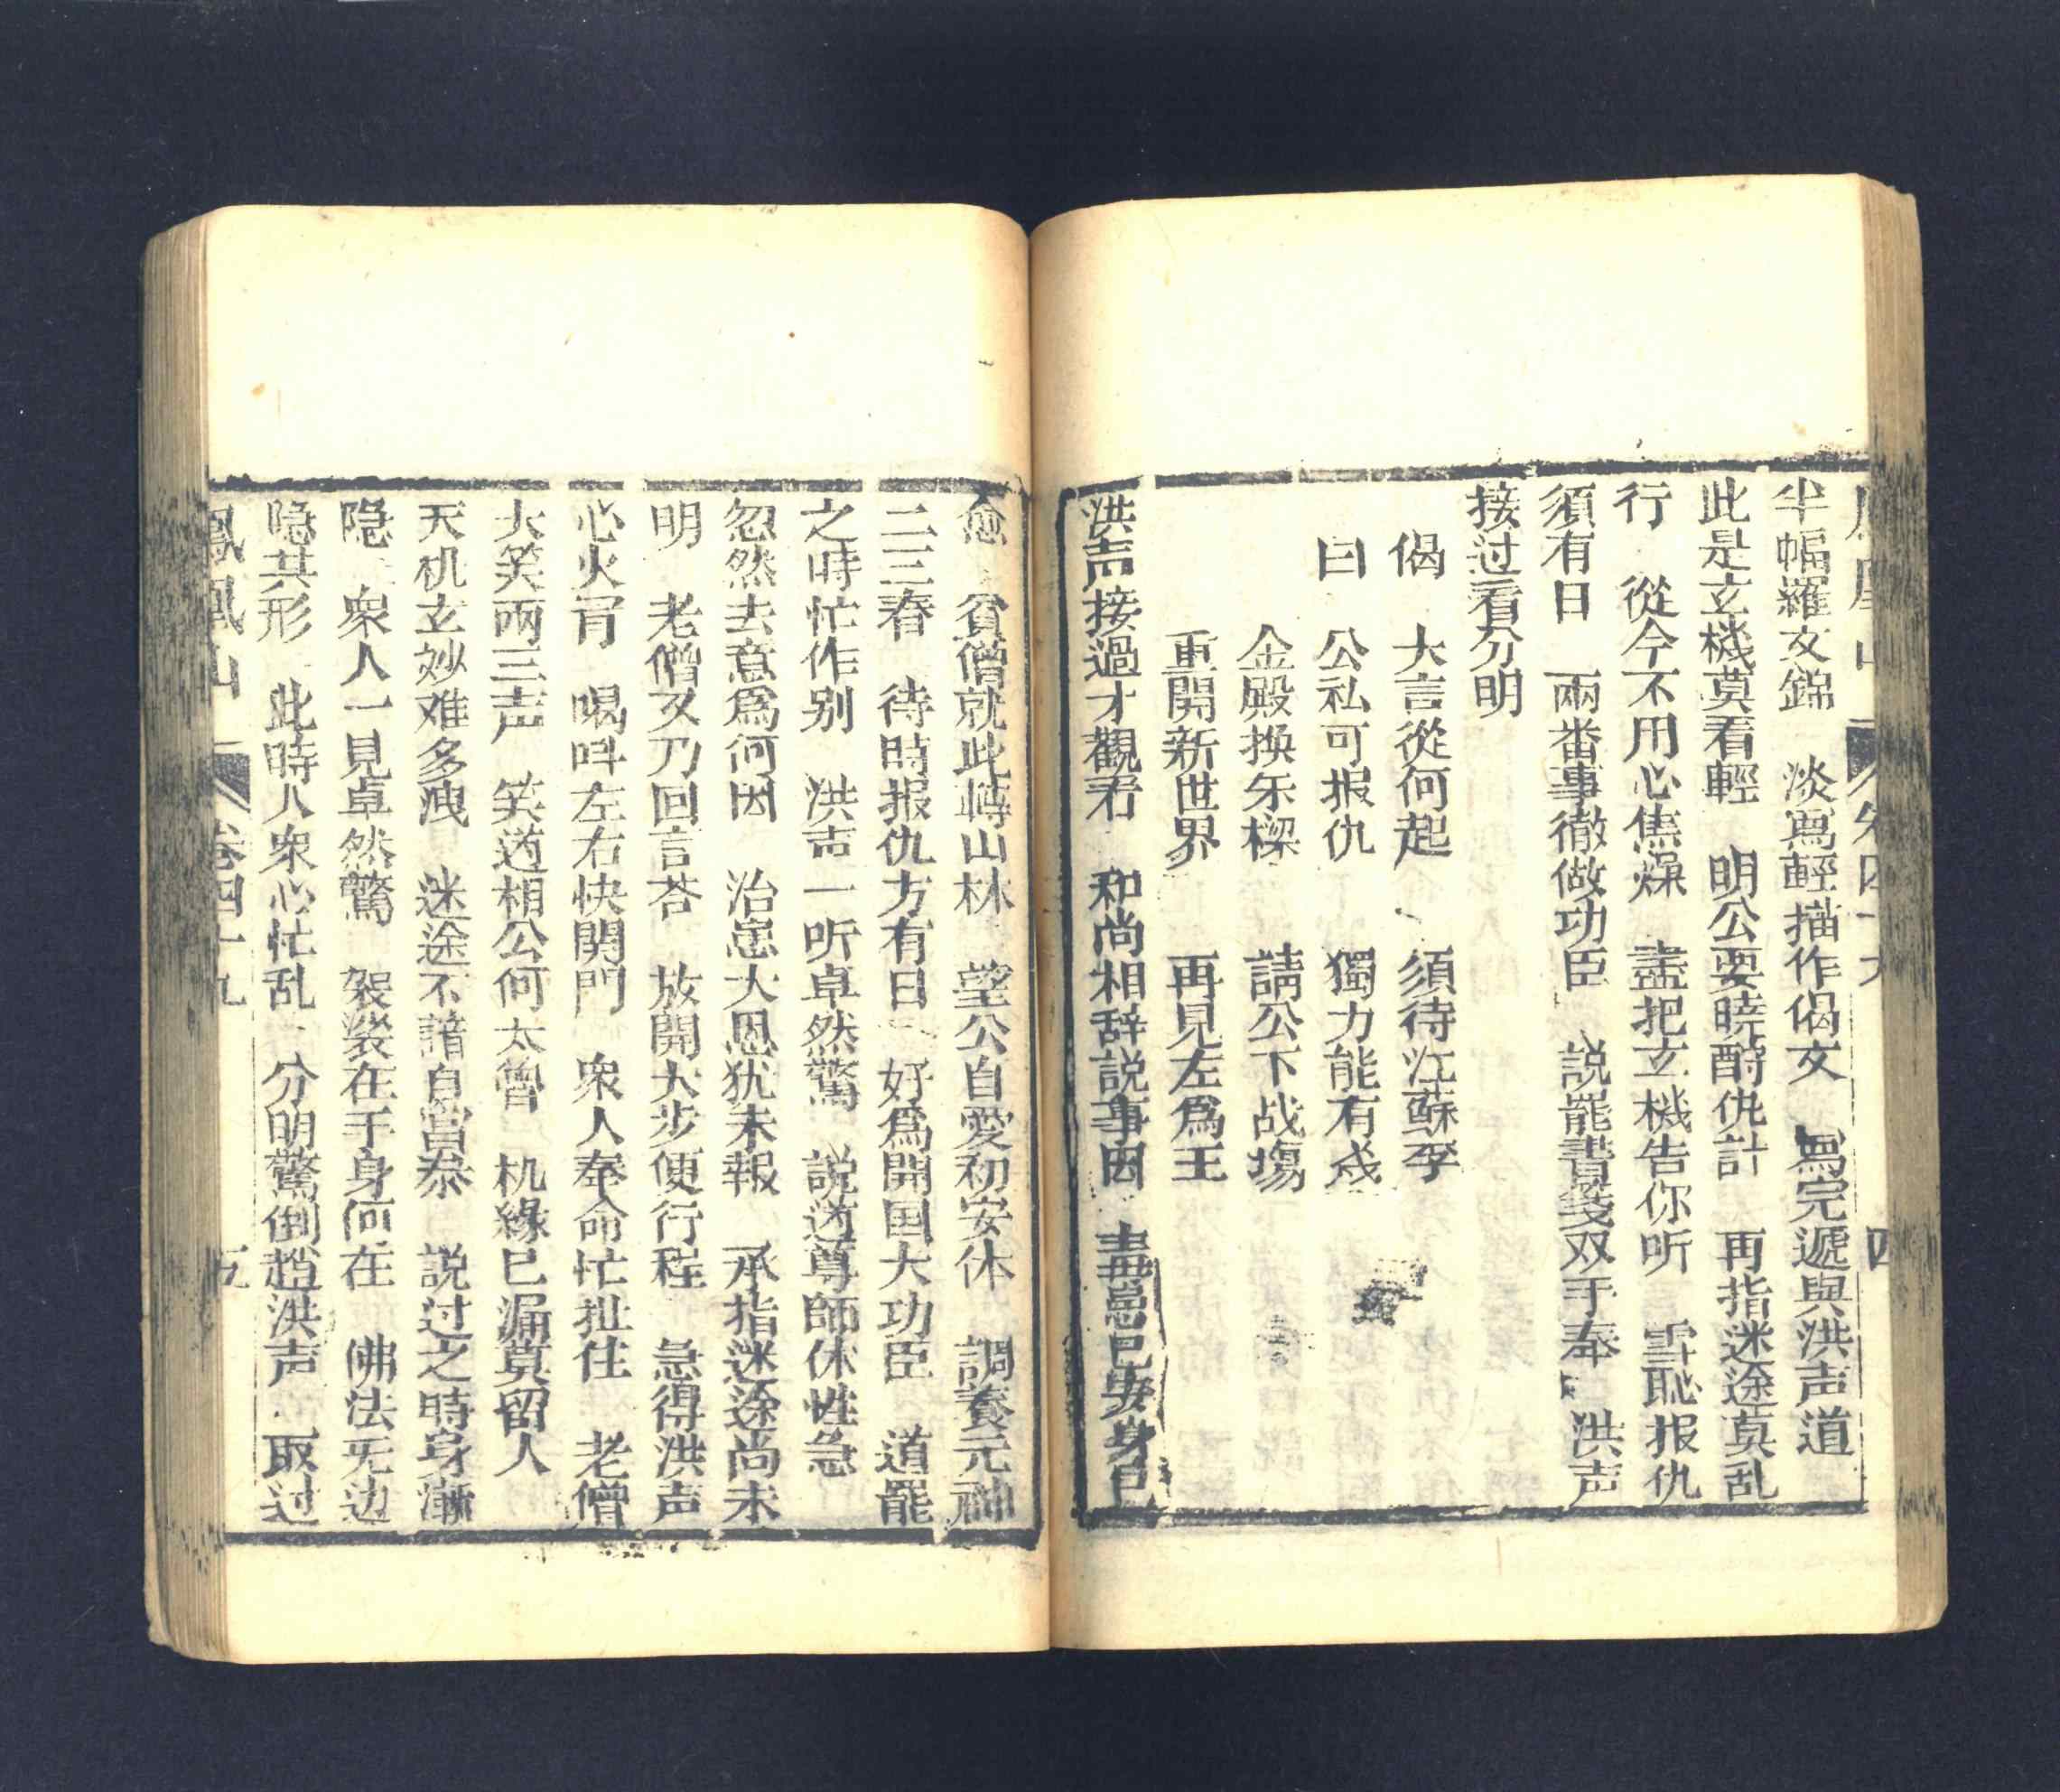 鳳凰山　卷四十九　四
半幅羅文錦　淡寫輕描作偈文　寫完遞與洪声道
此是玄機莫看輕　明公要曉酧仇計　再指迷途莫乱
行　從今不用心焦燥　盡把玄機告你听　雪恥报仇
須有日　兩番事徹做功臣　説罷書箋双手奉　洪声
接过看分明
偈　大言從何起　須待江蘇李
曰　公私可报仇　獨力能有成
金殿換朱樑　請公下战塲
重開新世界　再見左爲王
洪声接過才觀看　和尚相辞説事因　毒患已安身已
愈　貧僧就此轉山林　望公自愛初安体　調養元神
二三春　待時报仇方有日　好爲開国大功臣　道罷
之時忙作别　洪声一听卓然驚　説道尊師休性急
忽然去意爲何因　治患大恩犹未報　承指迷途尚未
明　老僧又乃回言荅　放開大步便行程　急得洪声
心火冐　喝呌左右快関門　衆人奉命忙扯住　老僧
大笑兩三声　笑道相公何太魯　机緣已漏莫留人
天机玄妙难多洩　迷途不諳自當叅　説过之時身漸
隐　衆人一見卓然驚　袈裟在手身何在　佛法无边
隐其形　此時人衆心忙乱　分明驚倒趙洪声　取过
鳳凰山　卷四十九　五